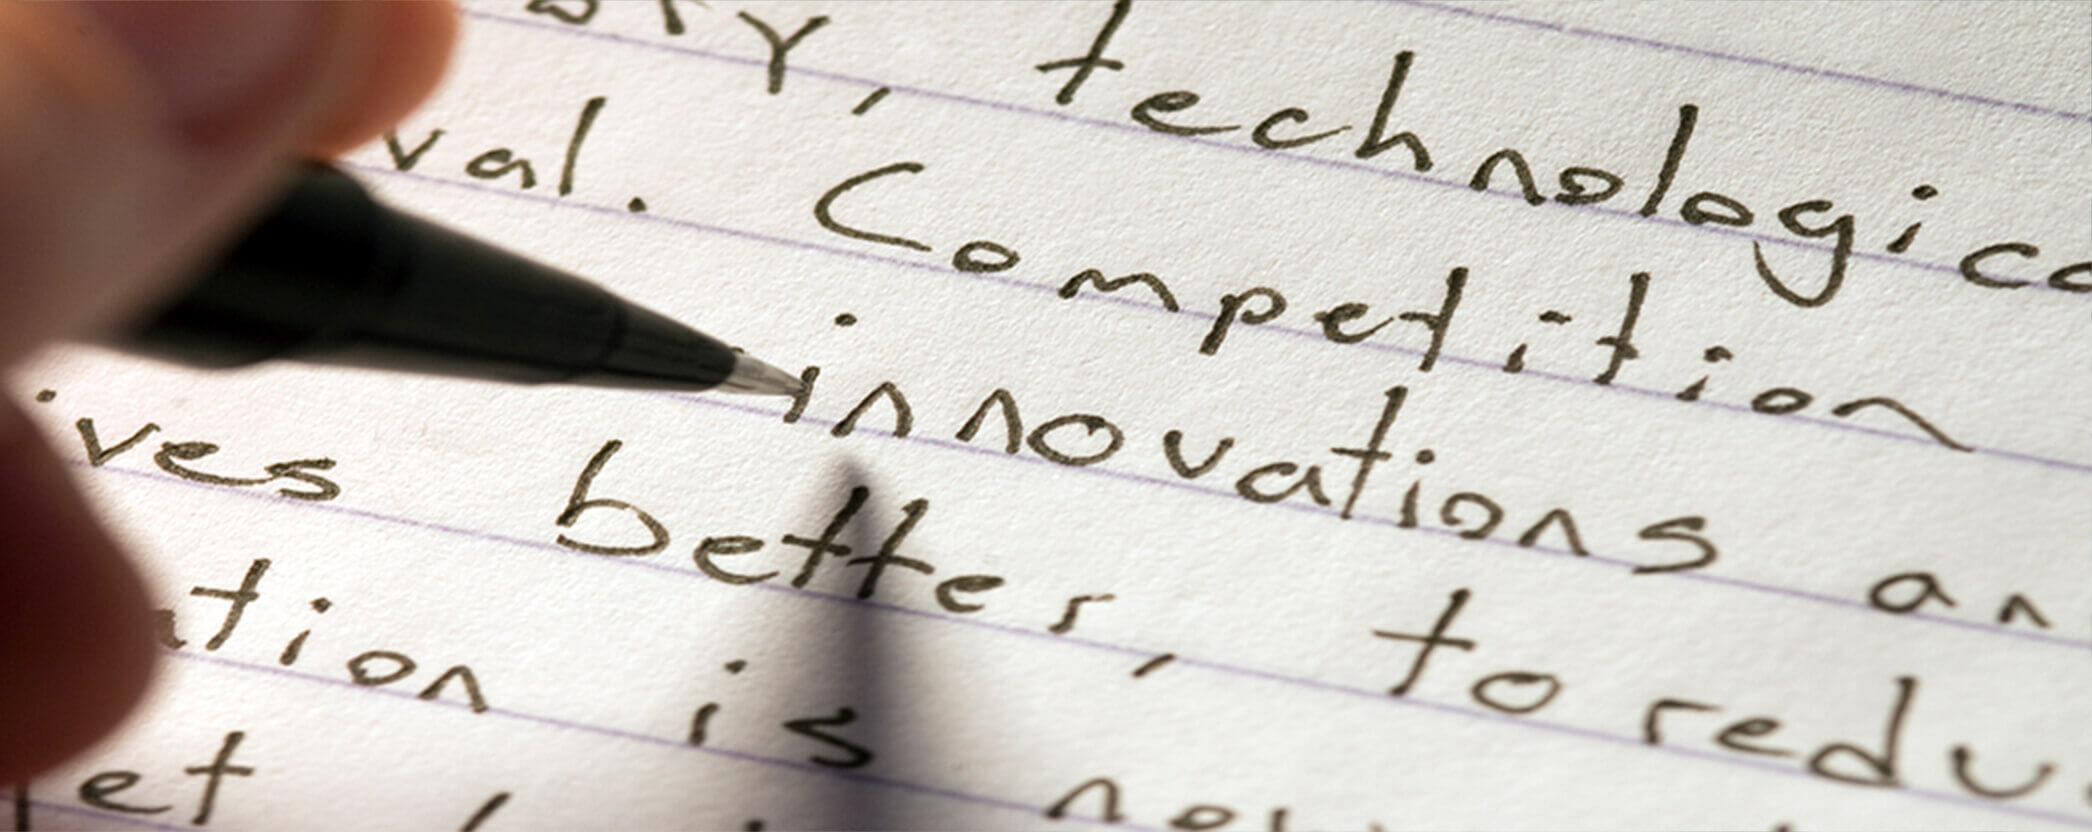 technologic
val. Competition
innovations an
ives better, to redu
ation is
et